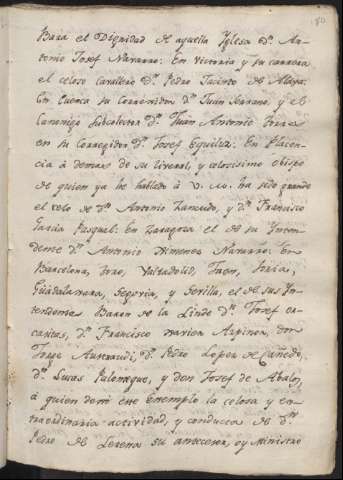 180
Baza el Dignidad de aquella Yglesia dn. An-
tonio Josef Navarro: En Victoria y su carrera
el celoso cavallero dn. Pedro Jacinto de Alava:
En Cuenca su Corregidor dn. Juan Serrano, y el
Canonigo Subcolector dn. Juan Antonio
en su Corregidor dn. Josef Eguiluz: En Placen-
cia à demas de su liveral, y celosisimo obispo
de quien ya he hablado à V. M. ha sido grande
el celo de dn. Antonio Zancudo, y dn. Francisco
Garcia Pasqual: En Zaragoza el de su Yntен-
dente dn. Antonio Ximenez Navarro: En
Barcelona, Toro, Valladolid, Jaen, Soria,
Guadalaxara, Segovia, y Sevilla, el de sus Yn-
tendentes Baron de la Linde dn. Josef
dn. Francisco Xavier Azpiroz, don
Jorge Astraudi, dn. Pedro Lopez de Cañedo,
dn. Lucas Palomeque, y don Josef de Abalos,
à quien dexò este exemplo la celosa y ex-
traordinaria actividad, y conducta de dn.
Pedro de Lerena su antecesor, oy Ministro